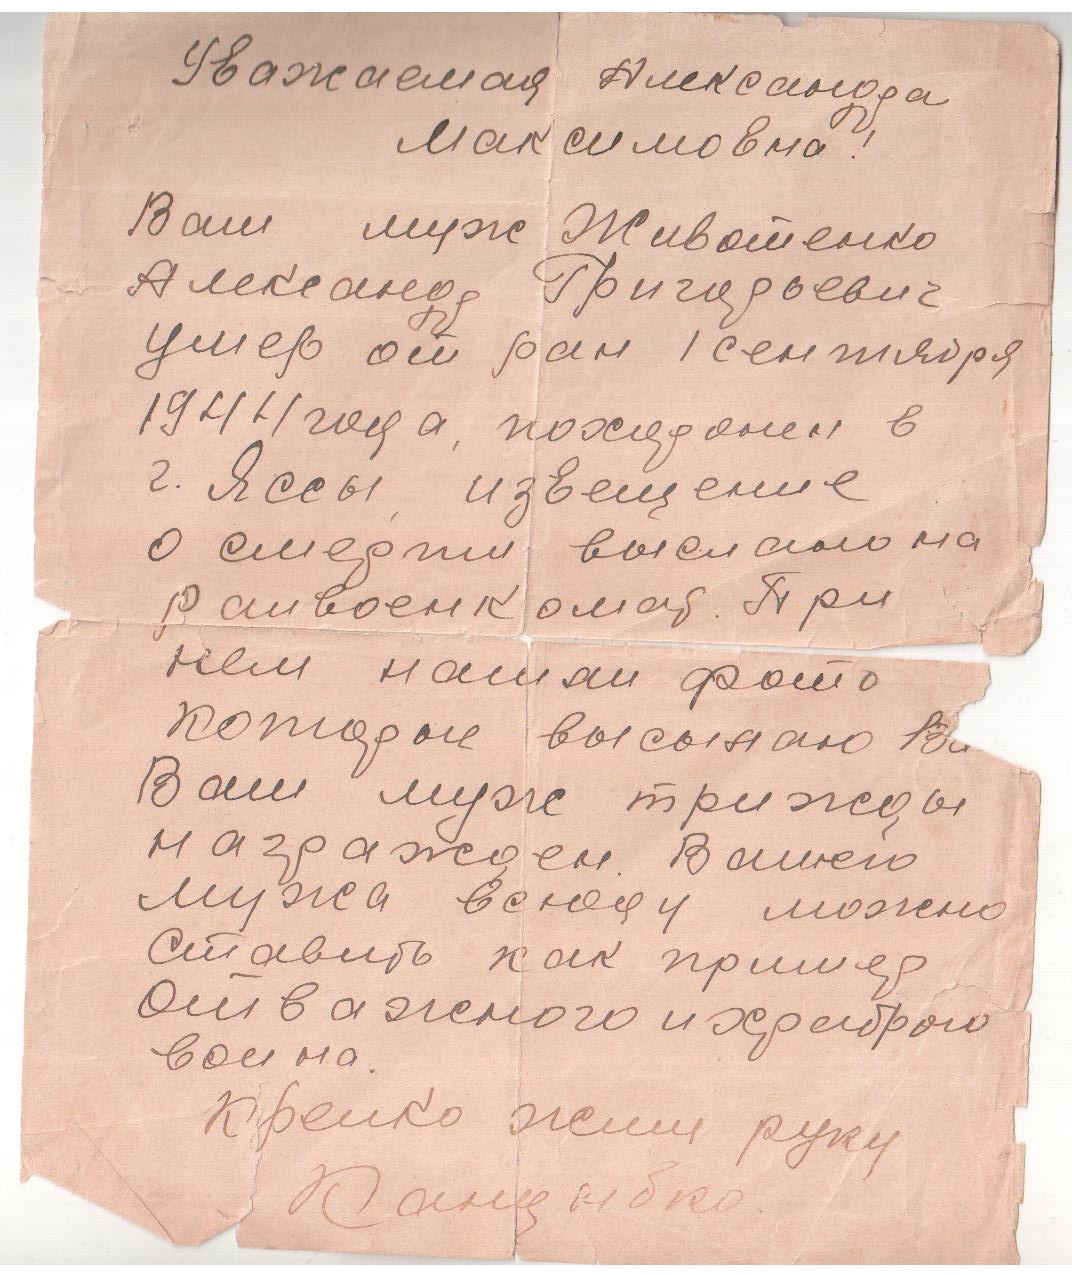 Уважаемая Александра
Максимовна!
Ваш муж Животенко
Александр Григорьевич
умер от ран 1 сентября
1944 года, похоронен в
г. Яссы, извещение
о смерти выслано на
Райвоенкомат. При
нем нашли фото
которые высылаю
Ваш муж трижды
награжден. Вашего
мужа всюду можно
ставить как пример
отважного и храброго
воина.
Крепко жму руку